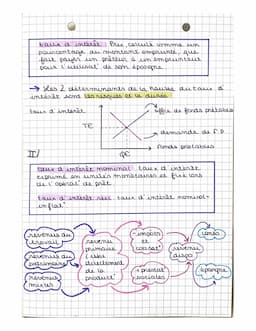 taux d'intérêt Prix, calculé comme un
pourcentage du montant emprunté, que
fait payer un prêteur à un emprunteur
pour l'utilisat° de son épargne.
→ Les 2 déterminants de la hausse du taux d'
intérêt sont les risques et la durée
taux d'intérêt
offre de fonds prêtables
TE
demande de F.P
QE
fonds prêtables
II/
taux d'intérêt nominal taux d'intérêt
exprimé en unités monétaires et fixé lors
de l'opérat° de prêt
taux d'intérêt réel taux d'intérêt nominal-
inflat°
revenus du
travail
revenus du
patrimoine
revenus
mixtes
revenu
primaire
(issu
directement
de la
product°
-impôts
et
cotisat°
+ prestat°
sociales
revenu
dispo
conso
épargne